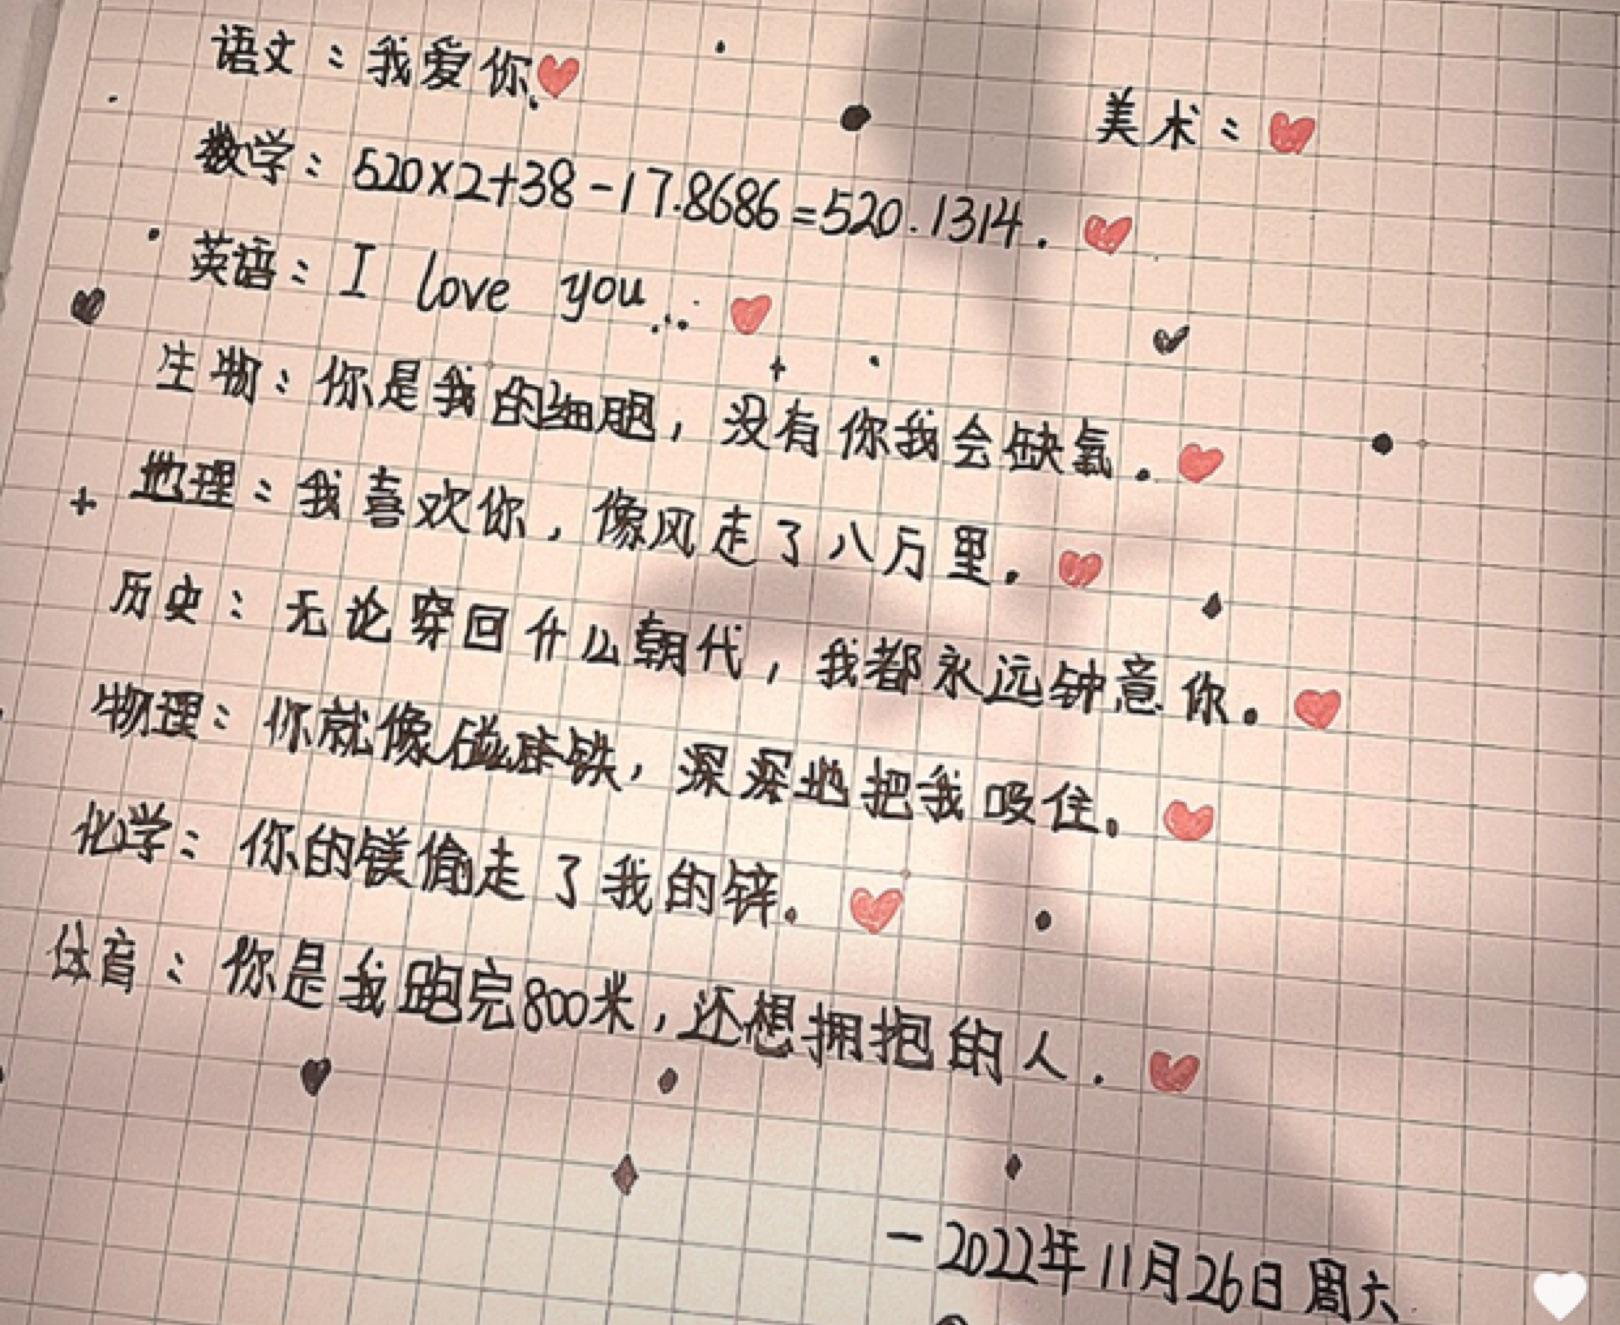 语文：我爱你
美术：
数学：520×2+38-17.8686=520.1314.
英语：I love you...
生物：你是我的细胞，没有你我会缺氧.
地理：我喜欢你，像风走了八万里.
历史：无论穿回什么朝代，我都永远钟意你.
物理：你就像磁铁，深深地把我吸住.
化学：你的镁偷走了我的锌.
体育：你是我跑完800米，还想拥抱的人.
-2022年11月26日周六